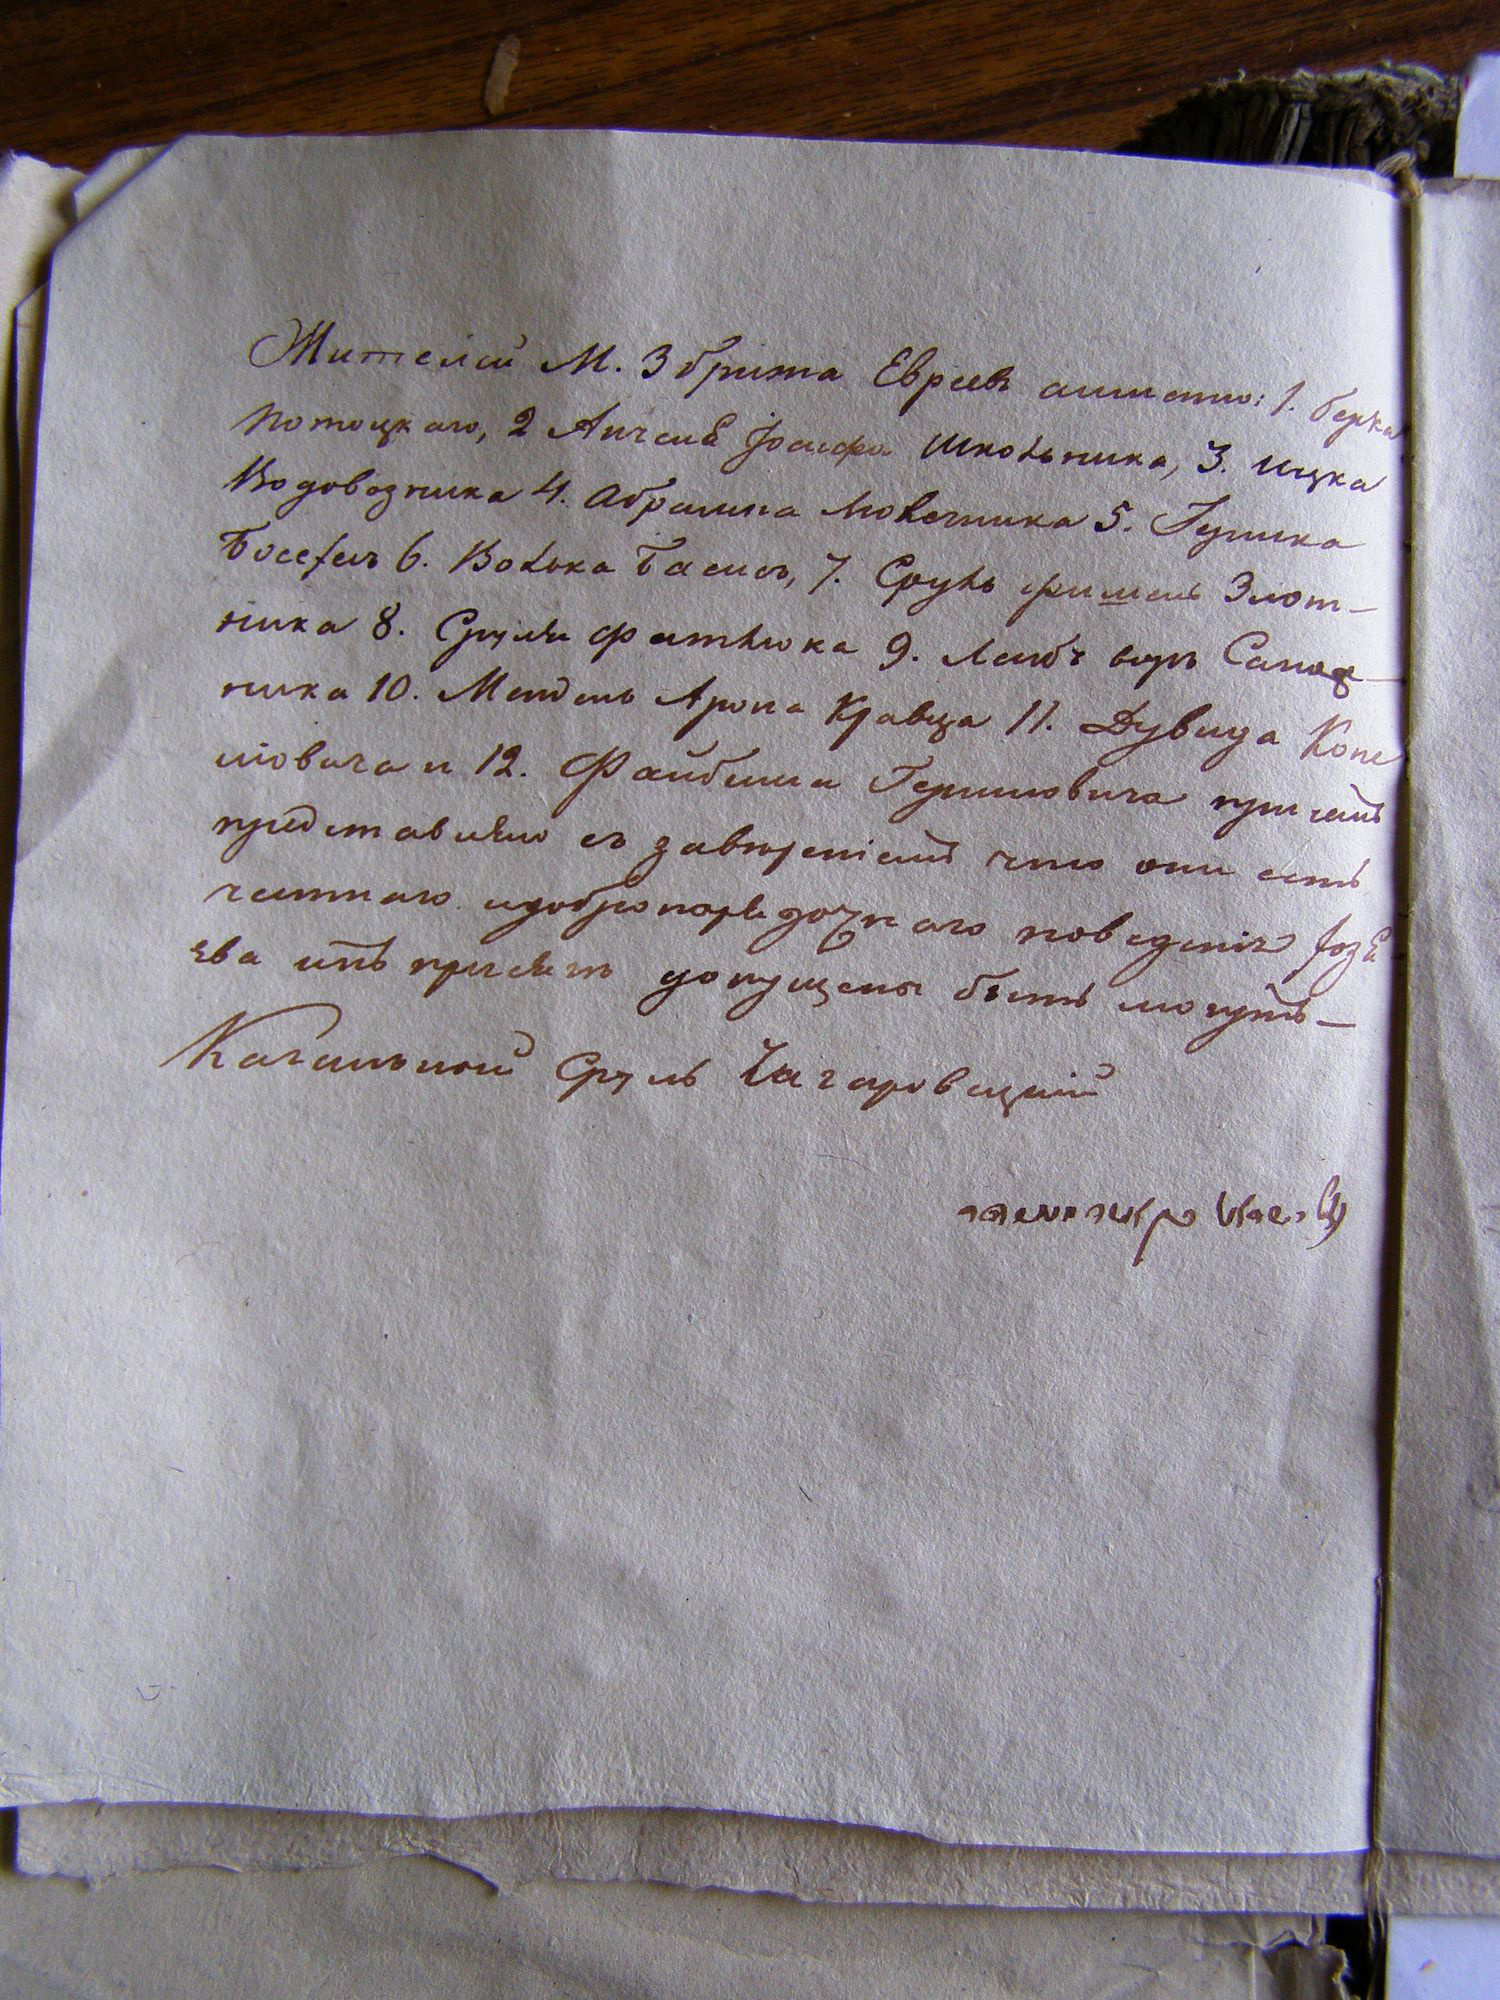 Жителей М. Збрижа Евреевъ аименно: 1. берка
Потоцкаго, 2 Анчеля Иосифа Школьника, 3. Ицка
Водовозника 4. Абрама Мовечника 5. Гершка
6. Волька Басисъ, 7. Сруль Злот-
ника 8. Сруля Фетлюка 9. Лейбъ Сапож-
ника 10. Мендель Арона Кравца 11. Дувида Копе
ловича и 12. Файбиша Гершковича при семъ
представляю съ завереніемъ что они есть
честнаго идобропорядочнаго поведенія
ева имъ присягъ допущены быть могутъ—
Кагальной Сруль Чагаровецкій